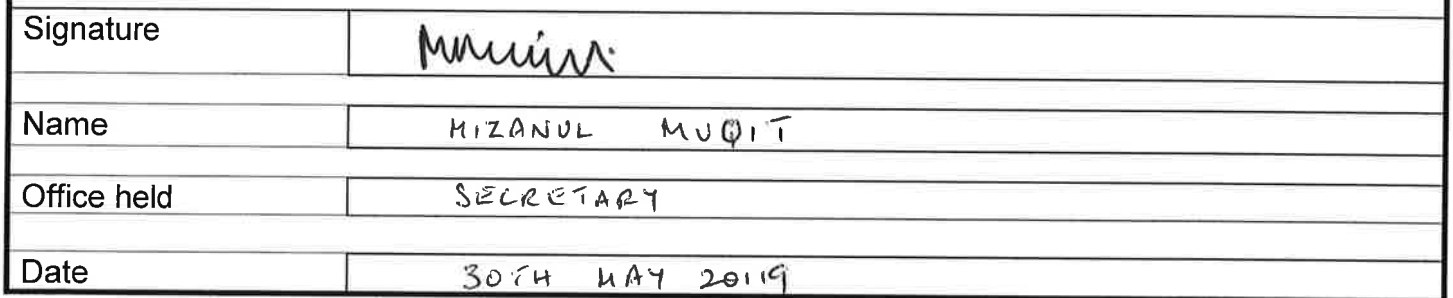 Signature
Name MIZANUL MUQIT
Office held SECRETARY
Date 30TH MAY 2019